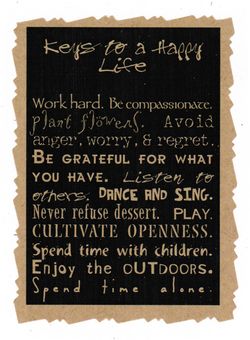 Keys to a Happy
Life
Work hard. Be compassionate.
plant flowers. Avoid
anger, worry, & regret.
BE GRATEFUL FOR WHAT
YOU HAVE. Listen to
others. DANCE AND SING.
Never refuse dessert. PLAY.
CULTIVATE OPENNESS.
Spend time with children.
Enjoy the OUTDOORS.
Spend time alone.